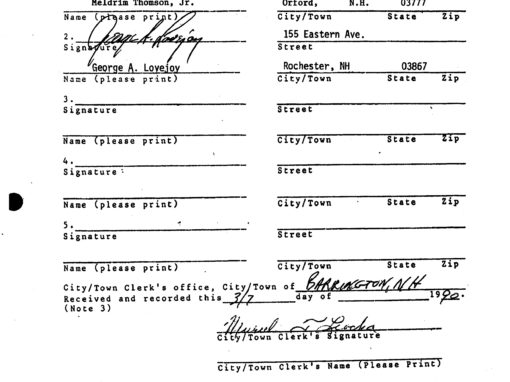 Meldrim Thomson, Jr. Orford, N.H. 03777
Name (please print) City/Town State Zip
2. George A. Lovejoy 155 Eastern Ave.
Signature Street
George A. Lovejoy Rochester, NH 03867
Name (please print) City/Town State Zip
3.
Signature Street
Name (please print) City/Town State Zip
4.
Signature Street
Name (please print) City/Town State Zip
5.
Signature Street
Name (please print) City/Town State Zip
City/Town Clerk's office, City/Town of BARRINGTON, NH
Received and recorded this 3/7 day of 1990.
(Note 3)
Muriel
City/Town Clerk's Signature
City/Town Clerk's Name (Please Print)